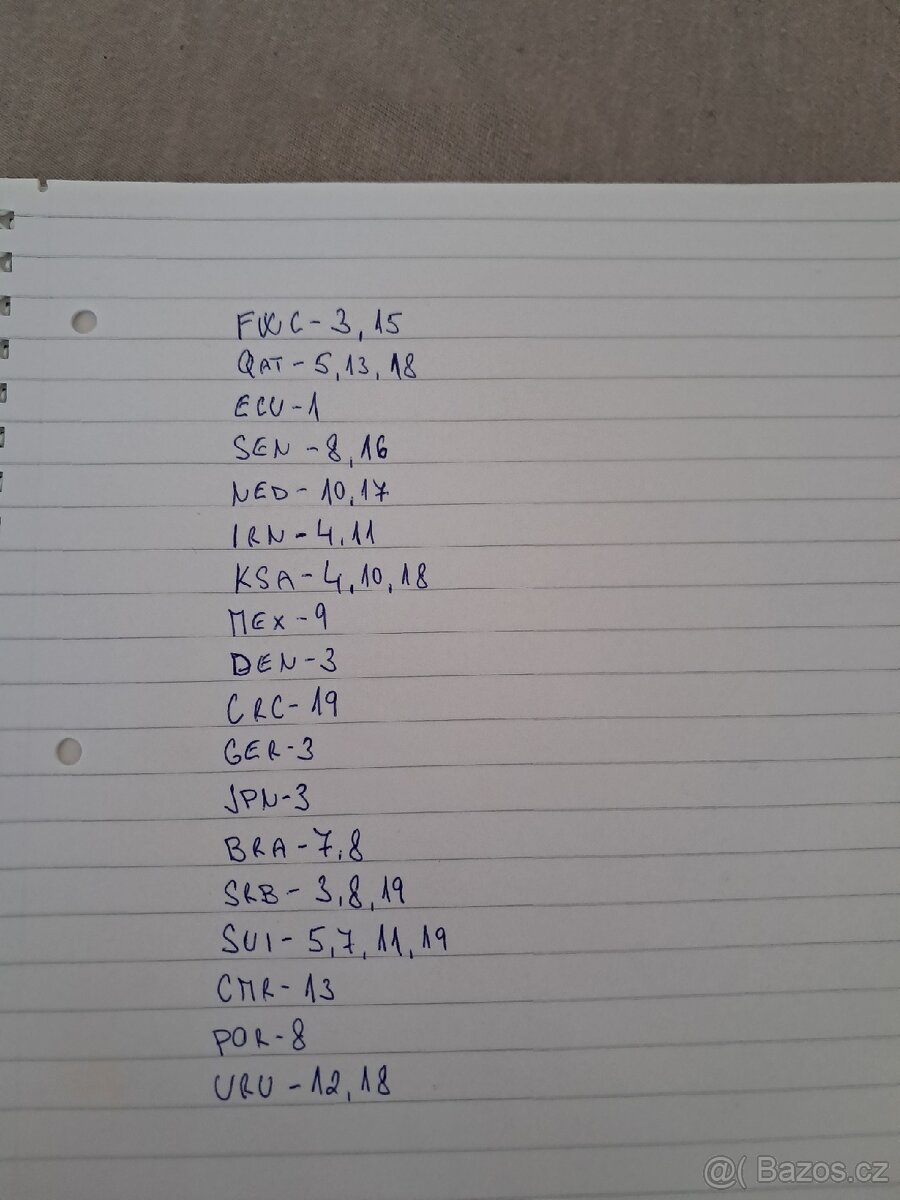 FWC - 3, 15
QAT - 5, 13, 18
ECU - 1
SEN - 8, 16
NED - 10, 17
IRN - 4, 11
KSA - 4, 10, 18
MEX - 9
DEN - 3
CRC - 19
GER - 3
JPN - 3
BRA - 7, 8
SRB - 3, 8, 19
SUI - 5, 7, 11, 19
CMR - 13
POR - 8
URU - 12, 18
@( Bazos.cz